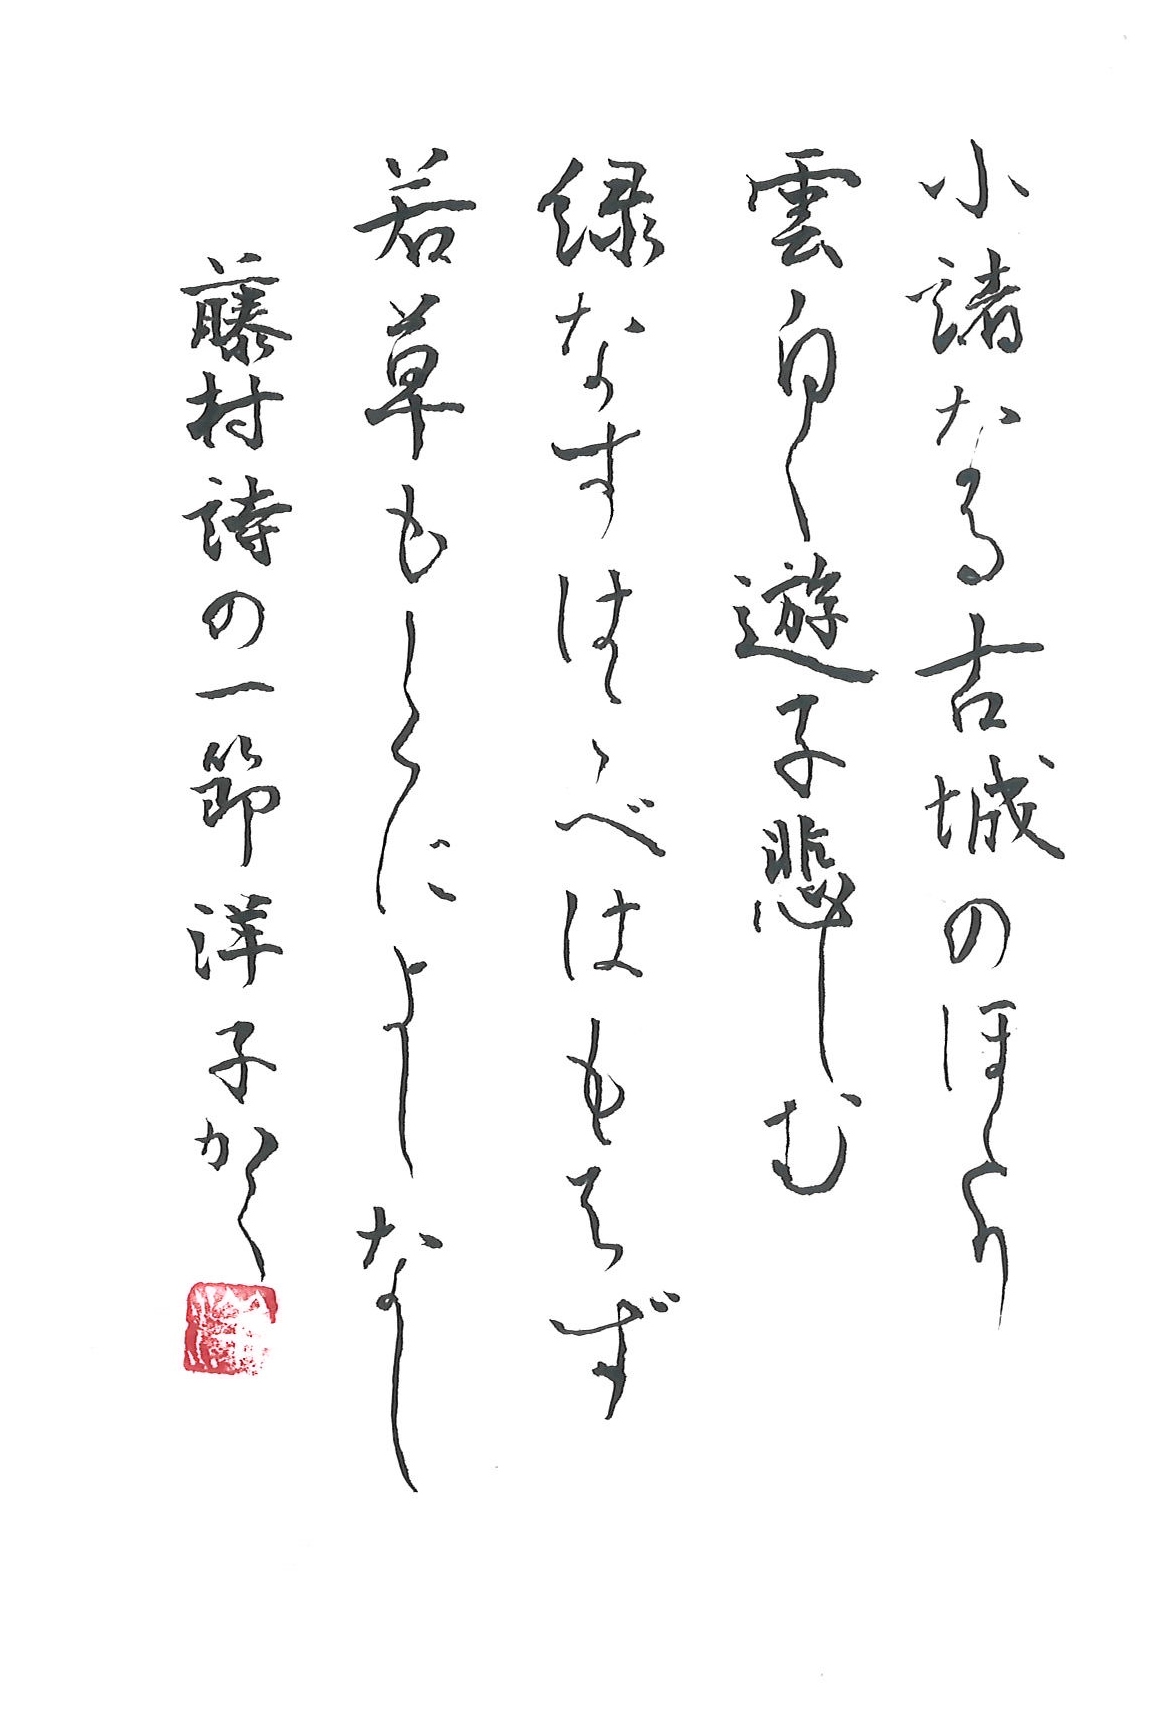 小諸なる古城のほとり
雲白く遊子悲しむ
緑なすはこべはもえず
若草もしくによしなし
藤村詩の一節 洋子かく